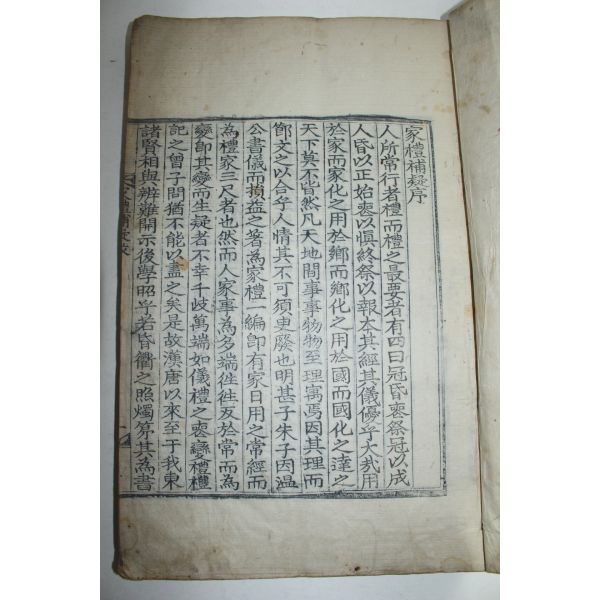 家禮補疑序
人所常行者禮而禮之最要者有四曰冠昏喪祭冠以成
人昏以正始喪以愼終祭以報本其經其儀優乎大哉用
於家而家化之用於鄕而鄕化之用於國而國化之達之
天下莫不皆然凡天地間事事物物至理寓焉因其理而
節文之以合乎人情其不可須臾廢也明甚子朱子因溫
公書儀而損益之著為家禮一編卽有家日用之常經而
為禮家三尺者也然而人家事為多端徃徃反於常而為
變卽其變而生疑者不幸千歧萬端如儀禮之喪變禮禮
記之曾子問猶不能以盡之矣是故漢唐以來至于我東
諸賢相與辨難開示後學昭乎若昏衢之照燭第其為書